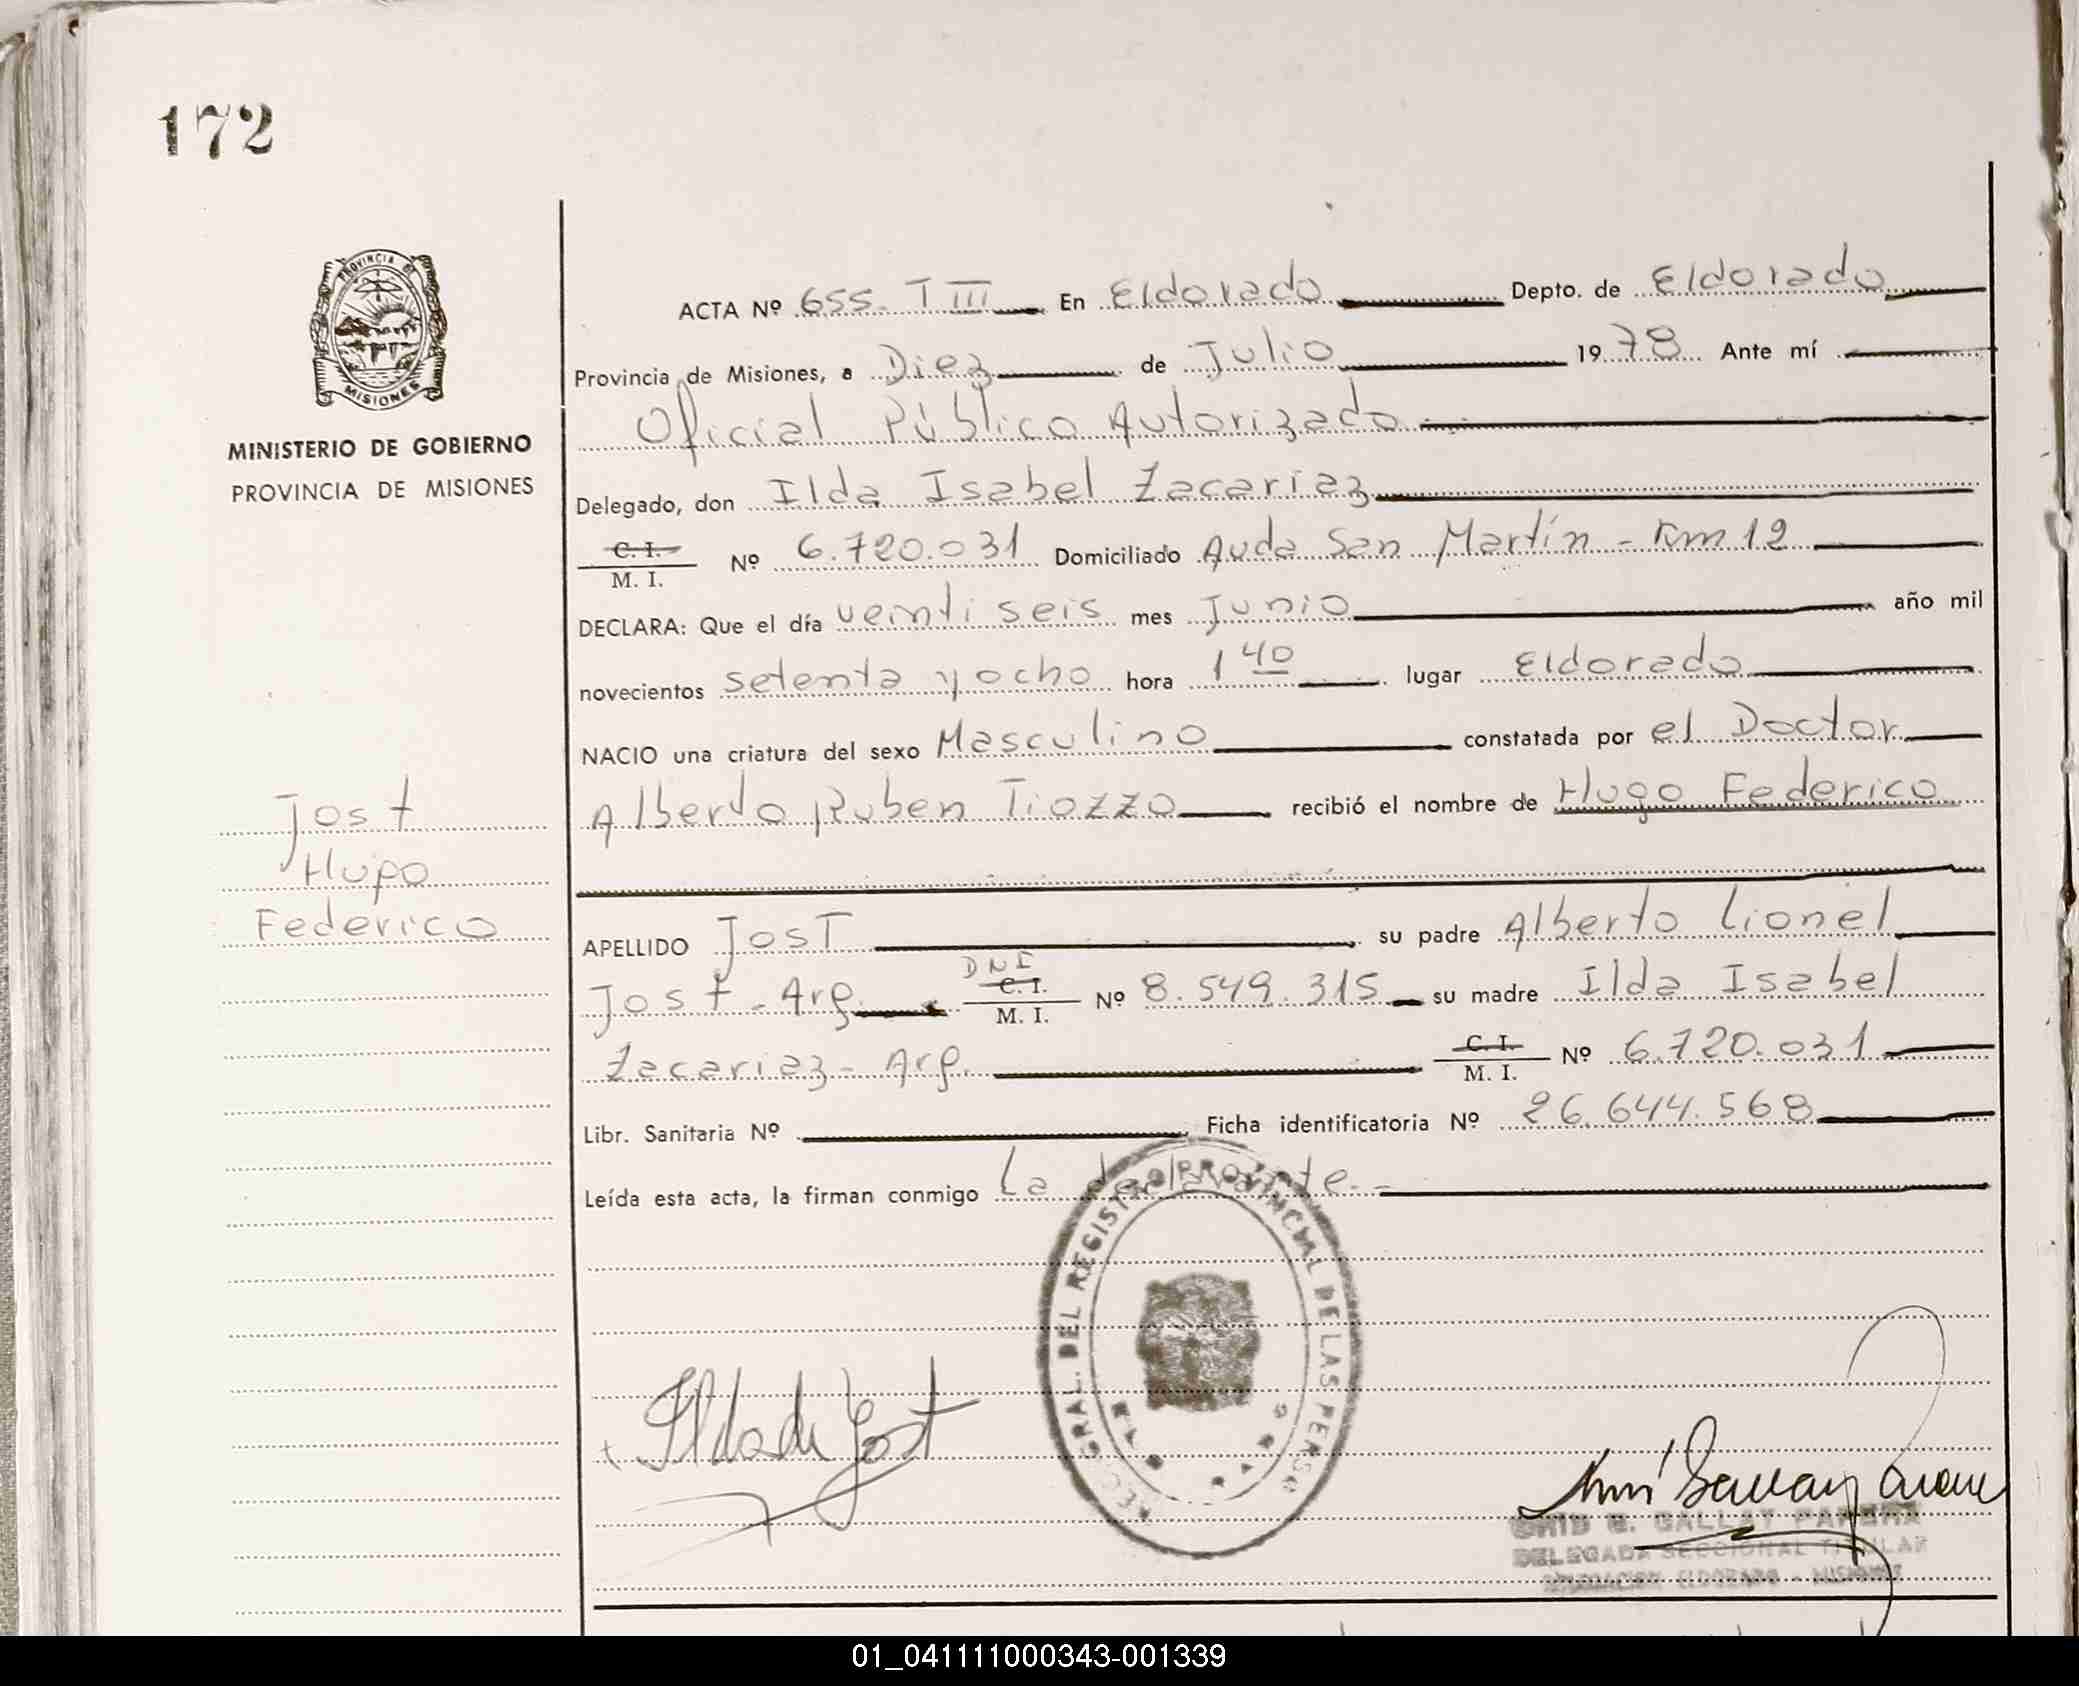 172
PROVINCIA DE
MISIONES
MINISTERIO DE GOBIERNO
PROVINCIA DE MISIONES
Jost
Hugo
Federico
ACTA Nº 655. T III En Eldorado Depto. de Eldorado
Provincia de Misiones, a Diez de Julio 1978 Ante mí
Oficial Público Autorizado
Delegado, don Ilda Isabel Zacariaz
C. I.
M. I. Nº 6.720.031 Domiciliado Avda San Martín - Km 12
DECLARA: Que el día veinti seis mes Junio año mil
novecientos setenta y ocho hora 1 40 lugar Eldorado
NACIO una criatura del sexo Masculino constatada por el Doctor
Alberto Ruben Tiozzo recibió el nombre de Hugo Federico
APELLIDO Jost su padre Alberto Lionel
Jost - Arg. DNI C. I. M. I. Nº 8.549.315 su madre Ilda Isabel
Zacariaz - Arg. C. I. M. I. Nº 6.720.031
Libr. Sanitaria Nº Ficha identificatoria Nº 26.644.568
Leída esta acta, la firman conmigo La declarante.-
GRAL. DEL REGISTRO PROVINCIAL DE LAS PERSO
Ilda de Jost
G. GALLAY
DELEGADA SECCIONAL TITULAR
ELDORADO - MISIONES
01_041111000343-001339